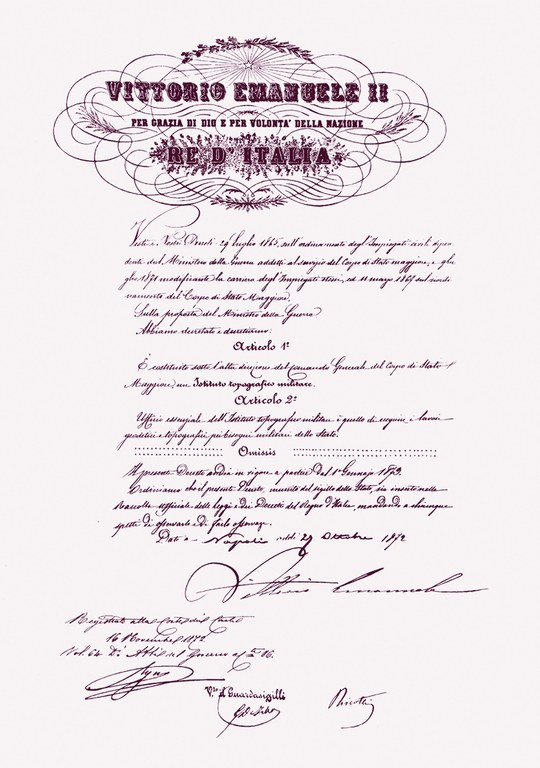 VITTORIO EMANUELE II
PER GRAZIA DI DIO E PER VOLONTA' DELLA NAZIONE
RE D' ITALIA
Visti i Nostri Decreti 29 luglio 1865, sull'ordinamento degl'Impiegati civili dipen
denti dal Ministero della Guerra addetti al servizio del Corpo di Stato maggiore, e
glio 1871 modificante la carriera degl'Impiegati stessi, ed 11 marzo 1867 sul riordi
namento del Corpo di Stato Maggiore;
Sulla proposta del Ministro della Guerra
Abbiamo decretato e decretiamo:
Articolo 1º
È costituito sotto l'alta direzione del comando Generale del Corpo di Stato
Maggiore, un Istituto topografico militare.
Articolo 2º
Ufficio essenziale dell'Istituto topografico militare è quello di eseguire i lavori
geodetici e topografici pei bisogni militari dello Stato.
Omissis
Il presente Decreto andrà in vigore a partire dal 1º Gennajo 1873.
Ordiniamo che il presente Decreto, munito del sigillo dello Stato, sia inserto nella
Raccolta ufficiale delle leggi e dei Decreti del Regno d'Italia, mandando a chiunque
spetti di osservarlo e di farlo osservare.
Dato a Napoli addì 27 Ottobre 1872
Vittorio Emanuele
Registrato alla Corte dei Conti
16 Novembre 1872
Vol. 64 Di Atti del Governo a f. 86.
Vto il Guardasigilli
Ricotti